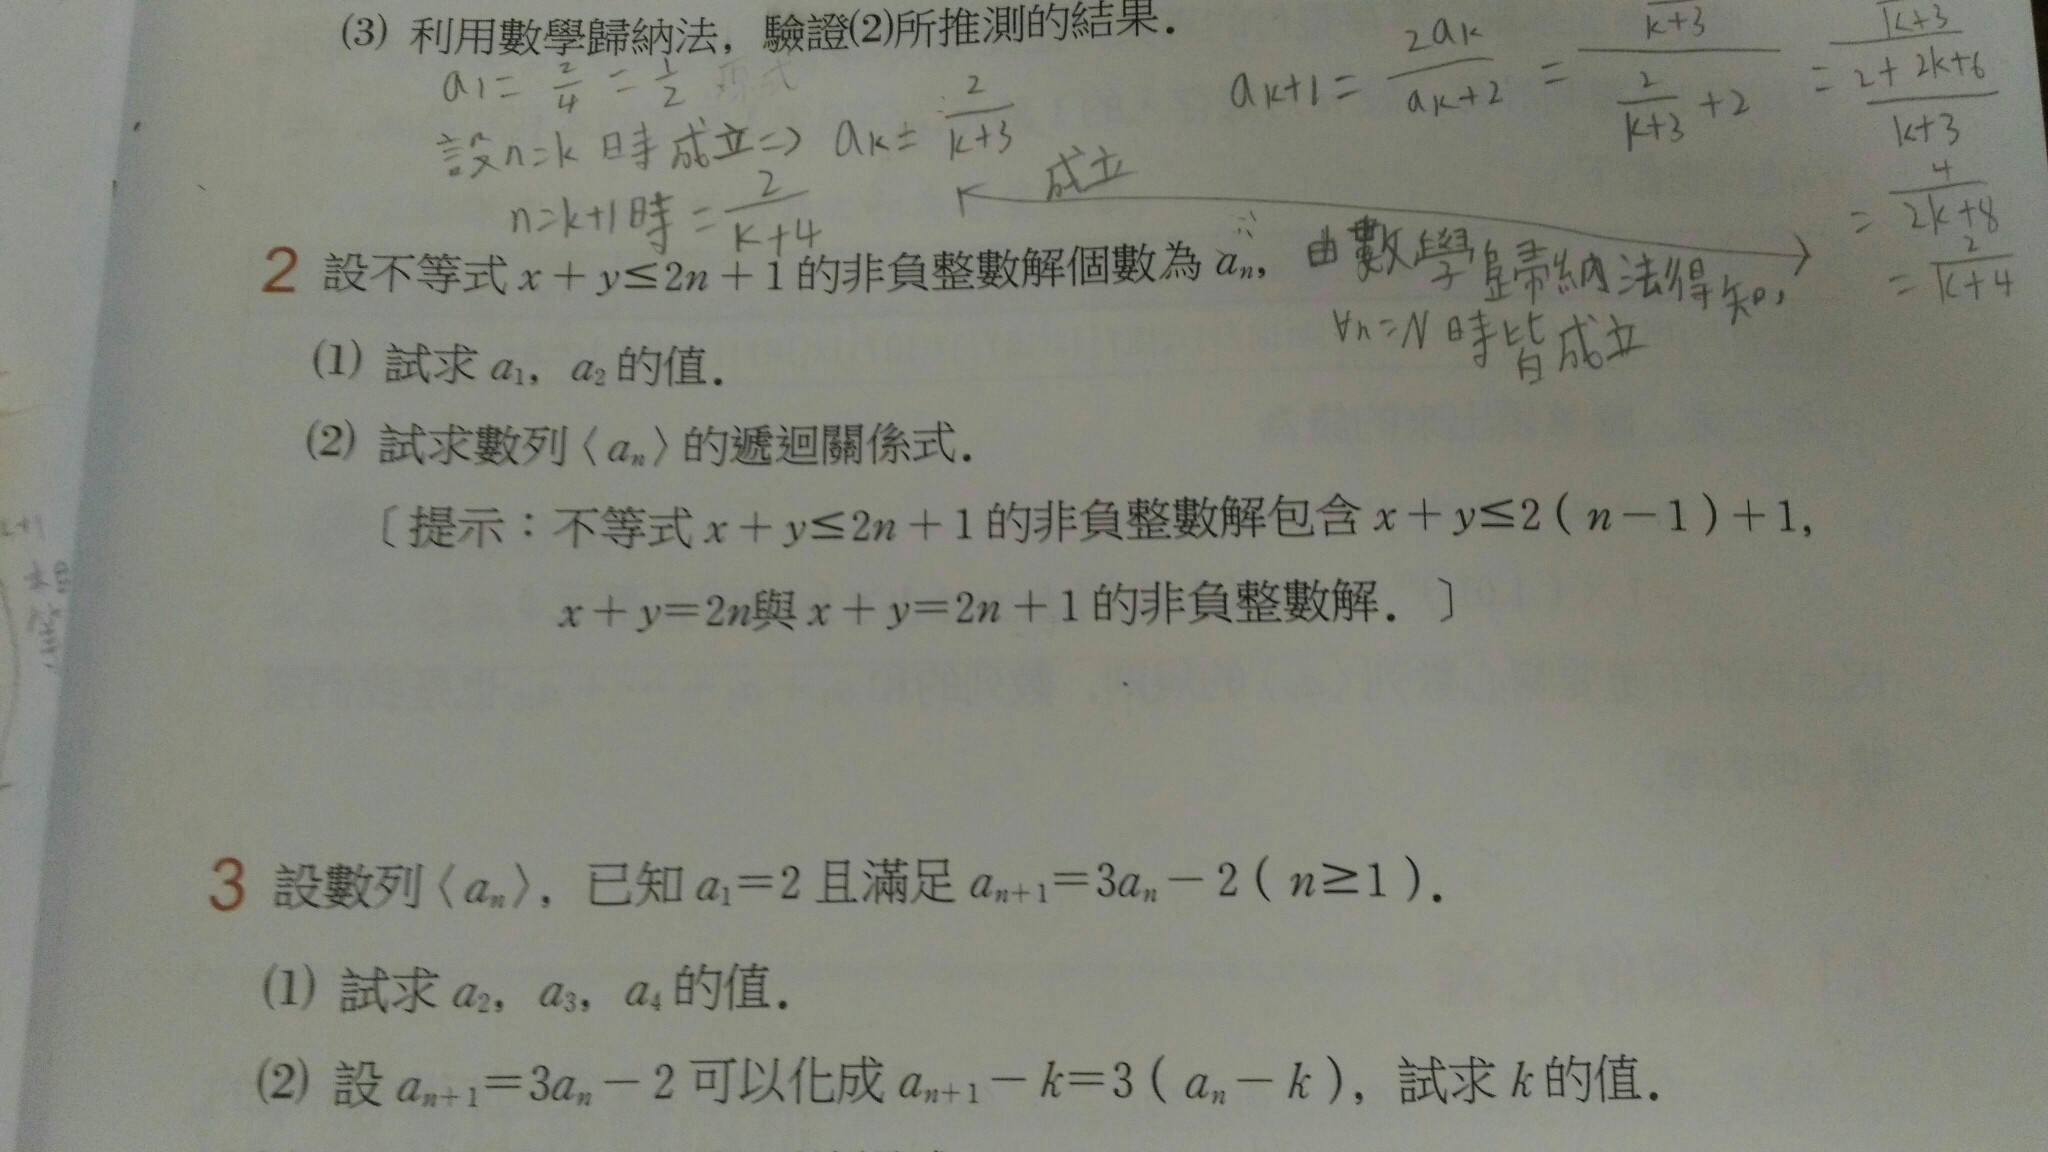 (3) 利用數學歸納法，驗證(2)所推測的結果．
a1 = 2/4 = 1/2
設n=k 時成立=> ak = 2/(k+3)
n=k+1時 = 2/(k+4)
成立
ak+1 = 2ak/(ak+2) = /(k+3) / (2/(k+3) + 2) = /(k+3) / ((2+2k+6)/(k+3))
= 4/(2k+8)
= 2/(k+4)
∴ 由數學歸納法得知,
∀n=N 時皆成立
2 設不等式 x + y≤2n + 1 的非負整數解個數為 an，
(1) 試求 a1，a2 的值．
(2) 試求數列〈an〉的遞迴關係式．
〔提示：不等式 x + y≤2n + 1 的非負整數解包含 x + y≤2 ( n－1 ) + 1，
x + y＝2n與 x + y＝2n + 1 的非負整數解．〕
3 設數列〈an〉，已知 a1＝2 且滿足 an+1＝3an－2 ( n≥1 )．
(1) 試求 a2，a3，a4 的值．
(2) 設 an+1＝3an－2 可以化成 an+1－k＝3 ( an－k )，試求 k 的值．